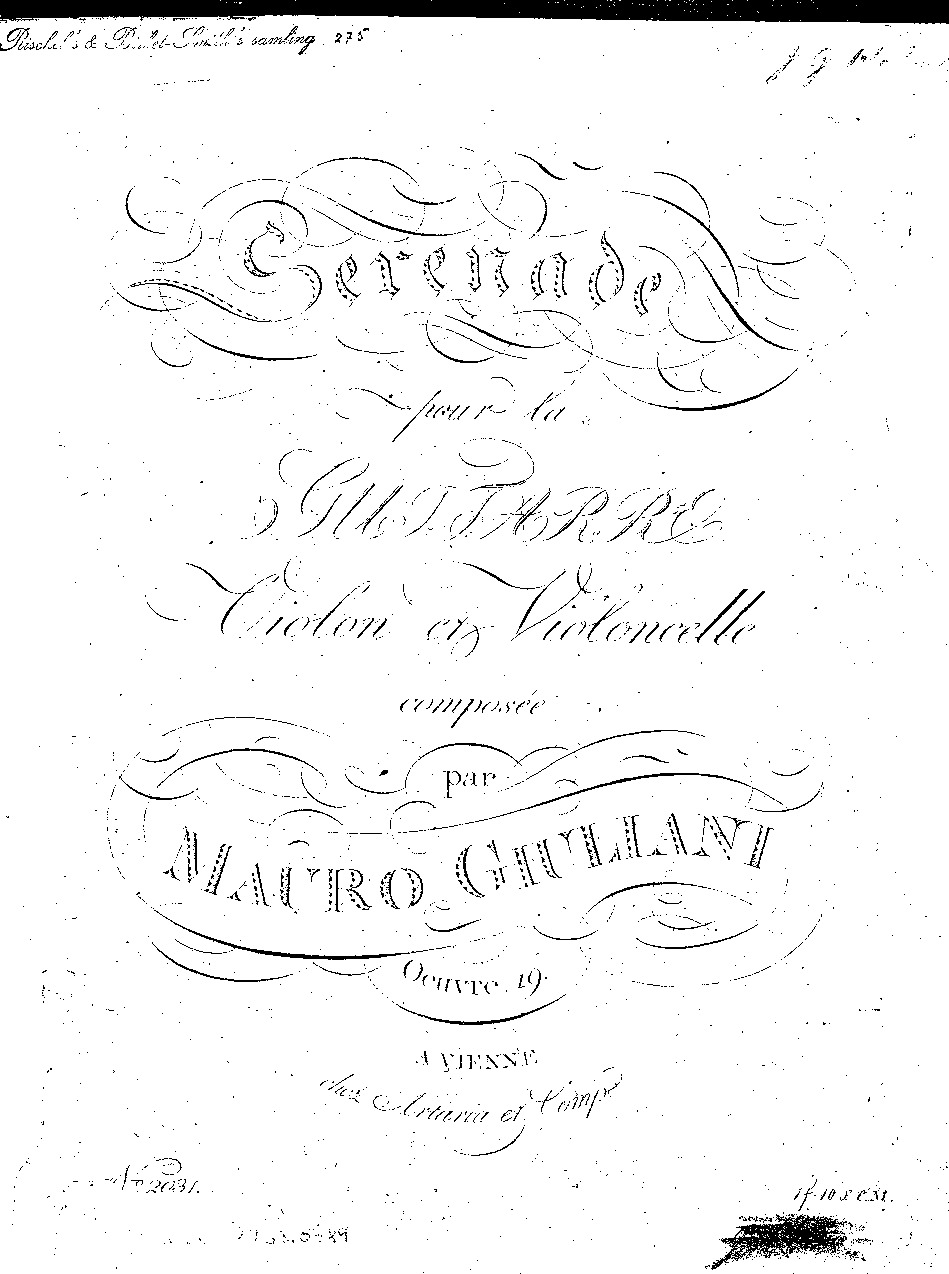 Rischel's & Birket-Smith's samling 275
Serenade
pour la
GUITTARRE
Violon et Violoncelle
composée
par
MAURO GIULIANI
Oeuvre 19.
A VIENNE
chez Artaria et Comp.
No 2031.